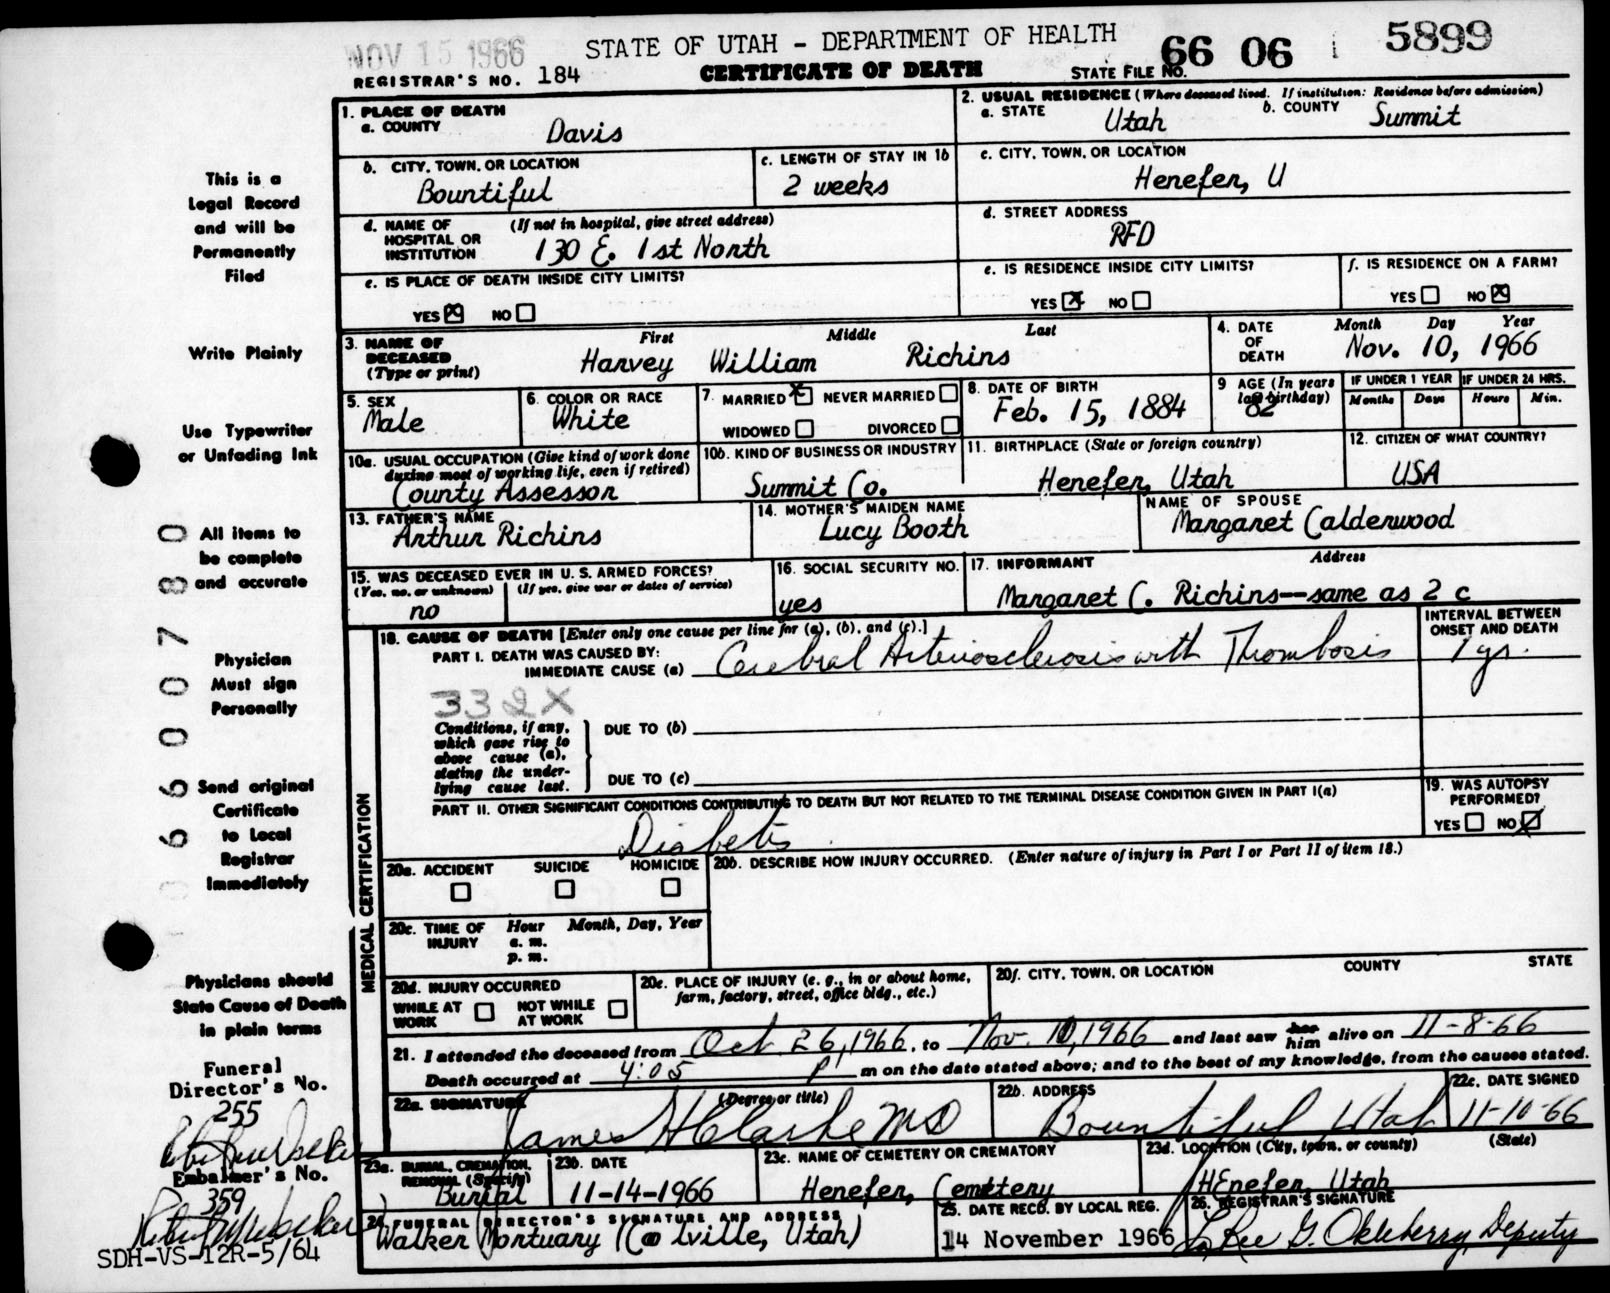 NOV 15 1966
STATE OF UTAH - DEPARTMENT OF HEALTH
66 06 5899
REGISTRAR'S NO. 184
CERTIFICATE OF DEATH
STATE FILE NO.
1. PLACE OF DEATH
a. COUNTY
Davis
2. USUAL RESIDENCE (Where deceased lived. If institution: Residence before admission)
a. STATE
Utah
b. COUNTY
Summit
b. CITY, TOWN, OR LOCATION
Bountiful
c. LENGTH OF STAY IN 1b
2 weeks
c. CITY, TOWN, OR LOCATION
Henefer, U
d. NAME OF HOSPITAL OR INSTITUTION
(If not in hospital, give street address)
130 E. 1st North
d. STREET ADDRESS
RFD
e. IS PLACE OF DEATH INSIDE CITY LIMITS?
YES NO
e. IS RESIDENCE INSIDE CITY LIMITS?
YES NO
f. IS RESIDENCE ON A FARM?
YES NO
3. NAME OF DECEASED
(Type or print)
First Middle Last
Harvey William Richins
4. DATE OF DEATH
Month Day Year
Nov. 10, 1966
5. SEX
Male
6. COLOR OR RACE
White
7. MARRIED NEVER MARRIED
WIDOWED DIVORCED
8. DATE OF BIRTH
Feb. 15, 1884
9 AGE (In years last birthday)
82
IF UNDER 1 YEAR
Months Days
IF UNDER 24 HRS.
Hours Min.
10a. USUAL OCCUPATION (Give kind of work done during most of working life, even if retired)
County Assessor
10b. KIND OF BUSINESS OR INDUSTRY
Summit Co.
11. BIRTHPLACE (State or foreign country)
Henefer, Utah
12. CITIZEN OF WHAT COUNTRY?
USA
13. FATHER'S NAME
Arthur Richins
14. MOTHER'S MAIDEN NAME
Lucy Booth
NAME OF SPOUSE
Margaret Calderwood
15. WAS DECEASED EVER IN U. S. ARMED FORCES?
(Yes, no, or unknown) (If yes, give war or dates of service)
no
16. SOCIAL SECURITY NO.
yes
17. INFORMANT Address
Margaret C. Richins--same as 2 c
MEDICAL CERTIFICATION
18. CAUSE OF DEATH [Enter only one cause per line for (a), (b), and (c).]
INTERVAL BETWEEN ONSET AND DEATH
PART I. DEATH WAS CAUSED BY:
IMMEDIATE CAUSE (a) Cerebral Arteriosclerosis with Thrombosis
1 yr.
332X
Conditions, if any, which gave rise to above cause (a), stating the underlying cause last.
DUE TO (b)
DUE TO (c)
PART II. OTHER SIGNIFICANT CONDITIONS CONTRIBUTING TO DEATH BUT NOT RELATED TO THE TERMINAL DISEASE CONDITION GIVEN IN PART I(a)
Diabetis
19. WAS AUTOPSY PERFORMED?
YES NO
20a. ACCIDENT SUICIDE HOMICIDE
20b. DESCRIBE HOW INJURY OCCURRED. (Enter nature of injury in Part I or Part II of item 18.)
20c. TIME OF INJURY
Hour Month, Day, Year
a. m.
p. m.
20d. INJURY OCCURRED
WHILE AT WORK NOT WHILE AT WORK
20e. PLACE OF INJURY (e. g., in or about home, farm, factory, street, office bldg., etc.)
20f. CITY, TOWN, OR LOCATION COUNTY STATE
21. I attended the deceased from Oct 26, 1966, to Nov. 10, 1966 and last saw her him alive on 11-8-66
Death occurred at 4:05 P m on the date stated above; and to the best of my knowledge, from the causes stated.
22a. SIGNATURE (Degree or title)
James H Clarke MD
22b. ADDRESS
Bountiful Utah
22c. DATE SIGNED
11-10-66
23a. BURIAL, CREMATION, REMOVAL (Specify)
Burial
23b. DATE
11-14-1966
23c. NAME OF CEMETERY OR CREMATORY
Henefer, Cemetery
23d. LOCATION (City, town, or county) (State)
HEnefer, Utah
24. FUNERAL DIRECTOR'S SIGNATURE AND ADDRESS
Walker Mortuary (Coalville, Utah)
25. DATE RECD. BY LOCAL REG.
14 November 1966
26. REGISTRAR'S SIGNATURE
Deputy
This is a
Legal Record
and will be
Permanently
Filed
Write Plainly
Use Typewriter
or Unfading Ink
All items to
be complete
and accurate
Physician
Must sign
Personally
Send original
Certificate
to Local
Registrar
Immediately
Physicians should
State Cause of Death
in plain terms
Funeral
Director's No.
255
Embalmer's No.
359
SDH-VS-12R-5/64
0 6 6 0 0 7 8 0